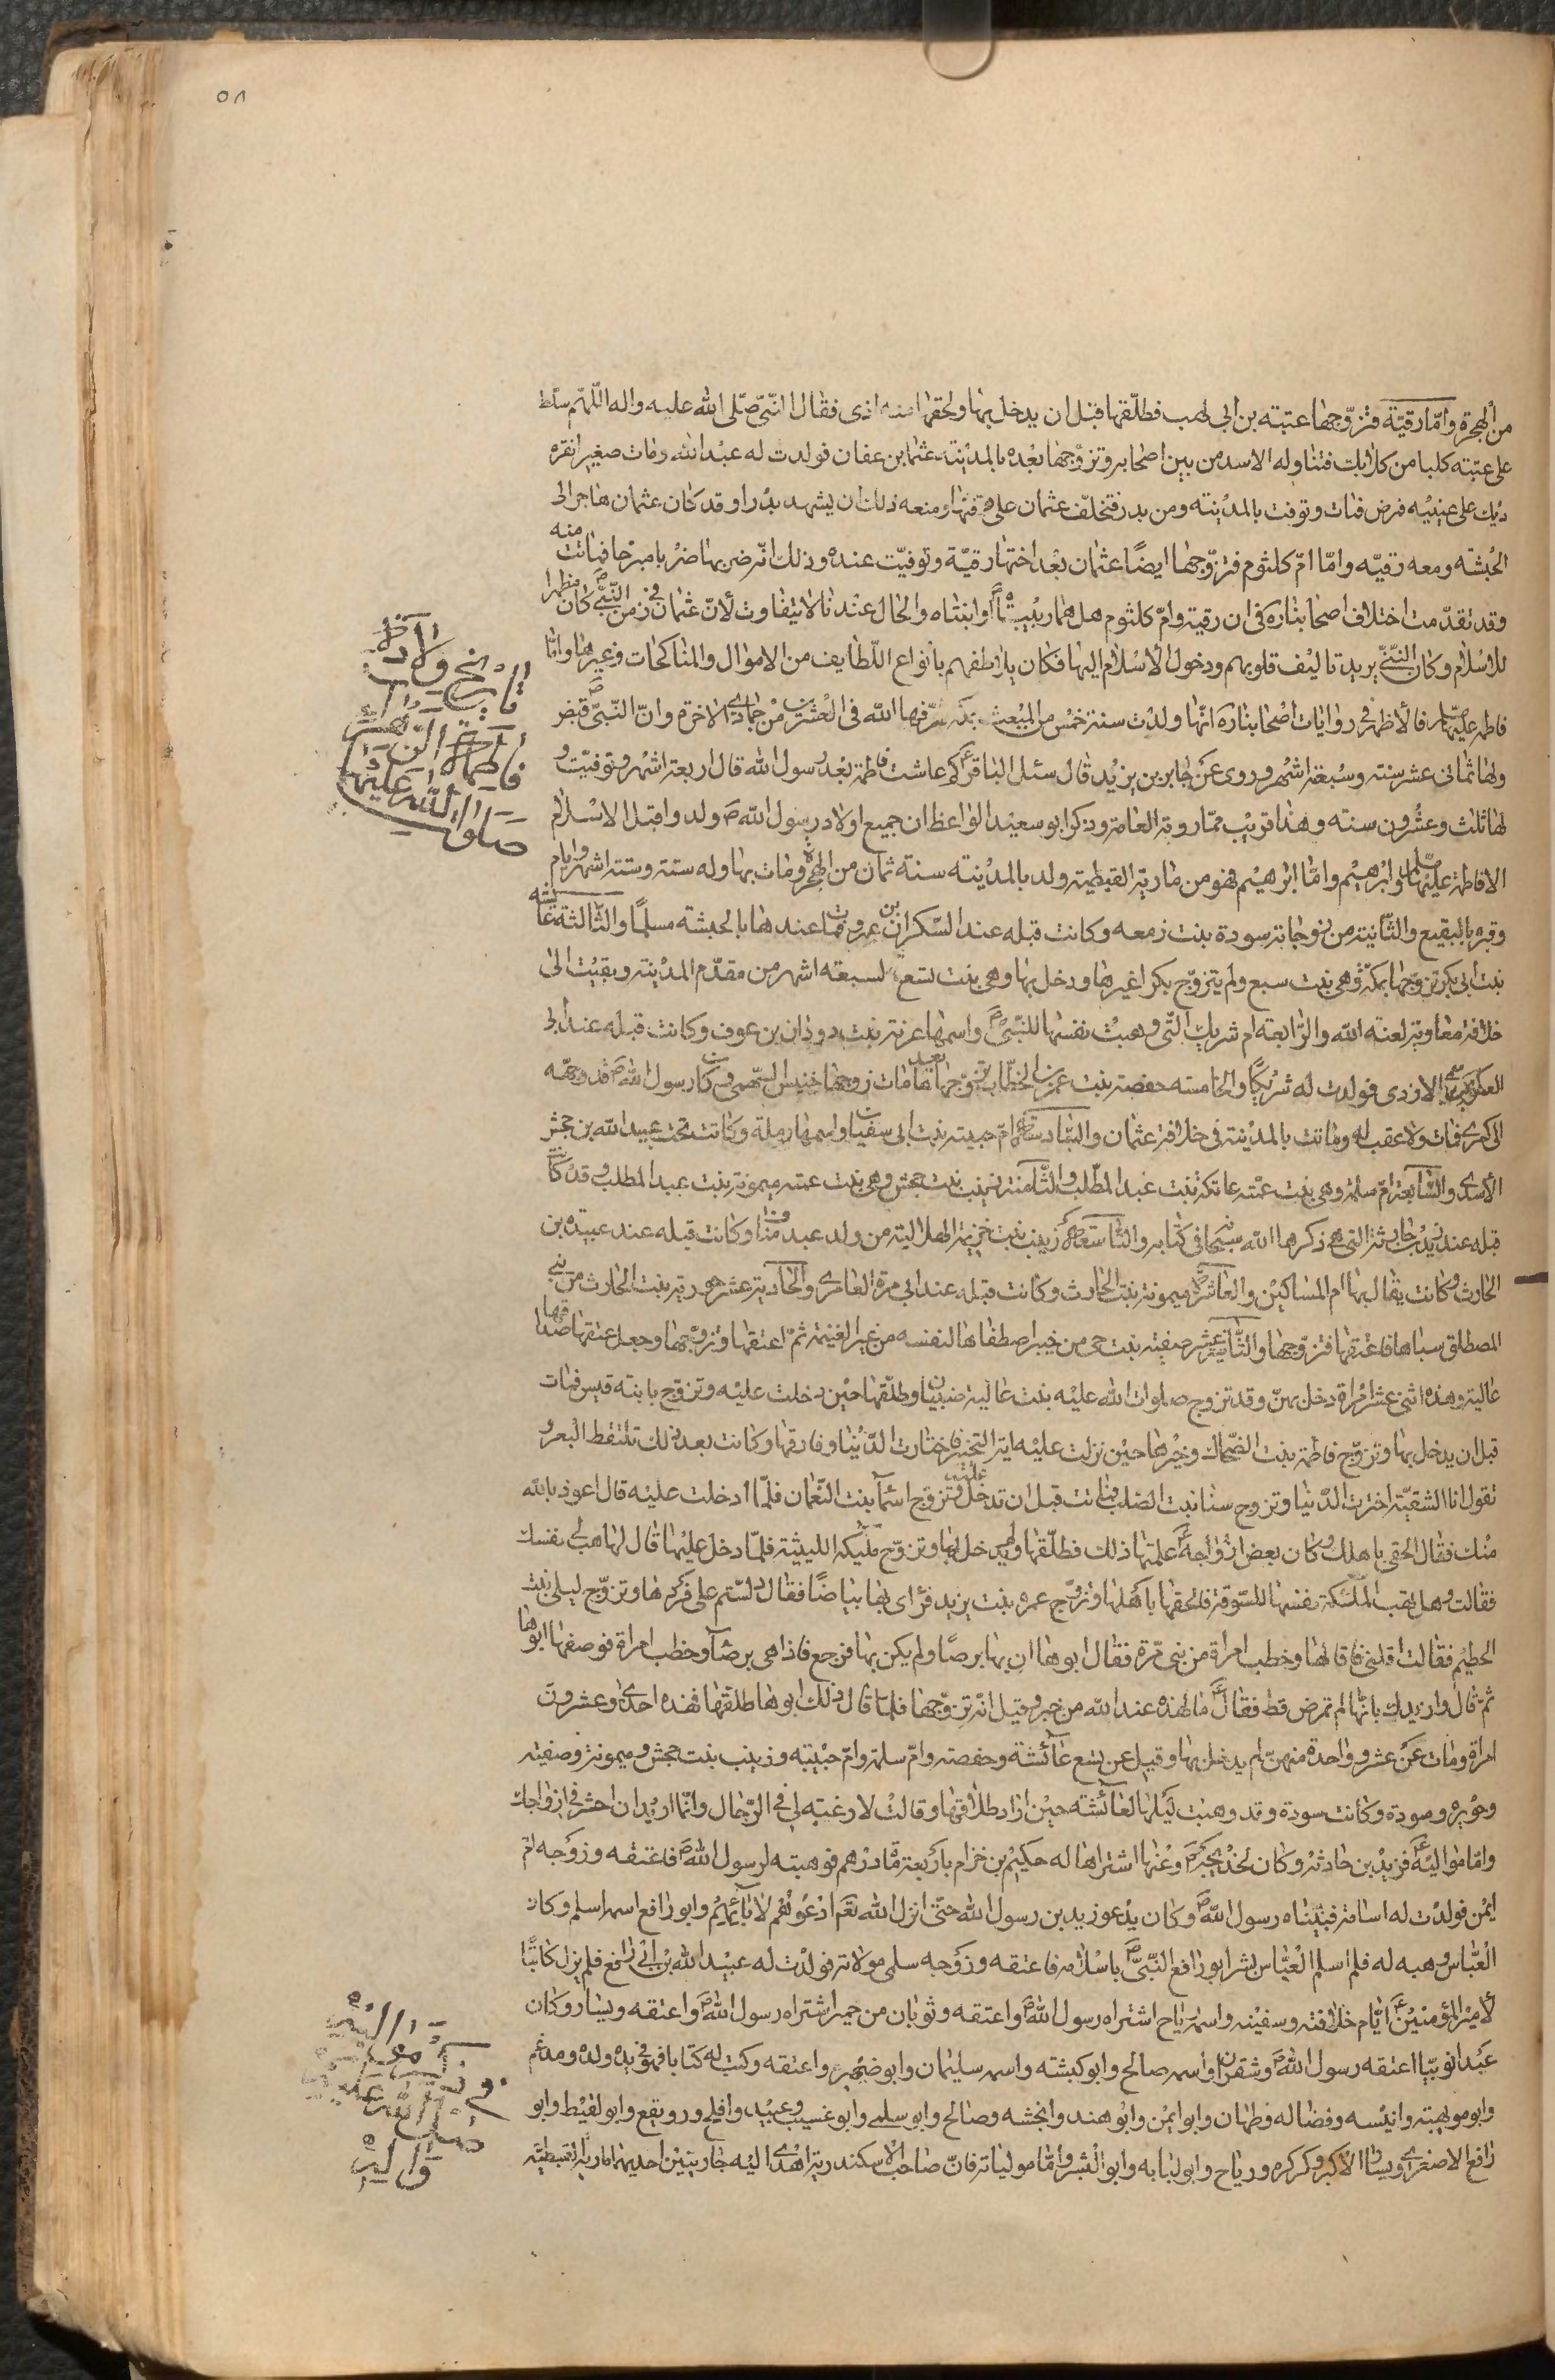 ٥٨
من الهجرة وامّا رقيّة فتزوّجها عتبته بن ابي لهب فطلّقها قبل ان يدخل بها ولحقها منه اذى فقال النّبيّ صلّى الله عليه واله اللّهمّ سلّط
على عتبته كلبا من كلابك فتناوله الاسد من بين اصحابه وتزوّجها بعده بالمدينه عثمان بن عفان فولدت له عبد الله ومات صغيرا نقره
ديك على عينيه فمرض فمات وتوفت بالمدينته ومن بدر فتخلّف عثمان على دفنها ومنعه ذلك ان يشهد بدرا وقد كان عثمان هاجر الى
الحبشه ومعه رقيّه وامّا امّ كلثوم فتزوّجها ايضًا عثمان بعد اختها رقيّة وتوفيّت عنده وذلك انّه ضربها ضربا مبرّحا فماتت منه
وقد تقدّمت اختلاف اصحابنا ره في ان رقية وامّ كلثوم هل هما ربيبتاه او ابنتاه والحال عندنا لا يتفاوت لأنّ عثمان في زمن النّبيّ ص كان مظهرا
للاسلام وكان النّبيّ يريد تاليف قلوبهم ودخول الأسلام اليها فكان يلاطفهم بانواع اللّطايف من الاموال والمناكحات وغيرها وامّا
فاطمه عليها السلام فالأظهر في روايات اصحابنا ره انّها ولدت سنة خمس من المبعث بمكه شرّفها الله في العشرين من جمادي الاخره وانّ النّبيّ ص قبض
ولها ثماني عشر سنته وسبعة اشهر وروى عن جابر بن يزيد قال سئل الباقر ع كم عاشت فاطمة بعد رسول الله قال اربعة اشهر وتوفيّت و
لها ثلث وعشرون سنته وهذا قريب ممّا روته العامّة وذكر ابو سعيد الواعظ ان جميع اولاد رسول الله ص ولدوا قبل الاسلام
الا فاطمة عليها السلم وابرهيم وامّا ابرهيم فهو من مارية القبطية ولد بالمدينته سنة ثمان من الهجرة ومات بها وله ستة وستة اشهر وايام
وقبره بالبقيع والثّانيته من زوجاته سودة بنت زمعه وكانت قبله عند السّكران بن عمرو فمات عندها بالحبشه مسلمًا والثّالثة عائشه
بنت ابي بكر تزوّجها بمكّة وهي بنت سبع ولم يتزوّج بكرا غيرها ودخل بها وهي بنت تسع لسبعه اشهر من مقدم المدينه وبقيت الى
خلافة معاوية لعنه الله والرّابعه ام شريك الّتي وهبت نفسها للنّبيّ ص واسمها عزيته بنت دودان بن عوف وكانت قبله عند ابي
العكر بن سمي الازدي فولدت له شريكًا والخامسته حفصة بنت عمر بن الخطّاب تزوّجها بعد ما مات زوجها خنيس السّهمي وكان رسول الله ص قد وجّهه
الى كسرى فمات ولا عقب له وماتت بالمدينة في خلافة عثمان والسّادسة امّ حبيبه بنت ابي سفيان واسمها رملة وكانت تحت عبيد الله بن جحش
الأسدي والسّابعة امّ سلمة وهي بنت عمّته عاتكة بنت عبد المطّلب والثّامنة زينب بنت جحش وهي بنت عمته ميمونة بنت عبد المطلب وقد كانت
قبله عند زيد بن حارثة الّتي ذكرها الله سبحانه في كتابه والتّاسعة زينب بنت خزيمة الهلاليه من ولد عبد مناف وكانت قبله عند عبيده بن
الحارث وكانت يقال لها ام المساكين والعاشرة ميمونه بنت الحارث وكانت قبله عند ابي مرة العامري والحادية عشر جويرية بنت الحارث من بني
المصطلق سباها فاعتقها فتزوّجها والثّانية عشر صفيّه بنت حي من خيبر اصطفاها لنفسه من غير الغنيمة ثمّ اعتقها وتزوّجها وجعل عتقها صداقها
عالية وهذه اثنى عشر امراة دخل بهنّ وقد تزوج صلوات الله عليه بنت عالية ضبيان وطلّقها حين دخلت عليه وتزوّج بابنته قيس فمات
قبل ان يدخل بها وتزوّج فاطمة بنت الضّحّاك وخيّرها حين نزلت عليه اية التّخيير فاختارت الدّنيا وفارقها وكانت بعد ذلك تلتقط البعر و
تقول انا الشقيّته اخترت الدّنيا وتزوج سنا بنت الصّلب فماتت قبل ان تدخل عليه وتزوّج اسمآ بنت النّعمان فلمّا ادخلت عليه قال اعوذ بالله
منك فقال الحقي باهلك وكان بعض ازواجه ع علمتها ذلك فطلّقها ولم يدخل بها وتزوّج مليكه الليثيّة فلمّا دخل عليها قال لها هبي لي نفسك
فقالت وهل تهب الملكة نفسها للسّوقة فالحقها باهلها وتزوّج عمره بنت يزيد فرأى بها بياضًا فقال دلّستم على فردّها وتزوّج ليلى بنت
الحطيم فقالت اقلني فاقالها وخطب امراة من بني مرّة فقال ابوها ان بها برصًا ولم يكن بها فرجع فاذا هي برصآ وخطب امراة فوصفها ابوها
ثمّ قال وازيدك بانّها لم تمرض قط فقال ع ما لهذه عند الله من خير وقيل انّه تزوّجها فلمّا قال ذلك ابوها طلقها فهذه احدى وعشرون
امراة ومات عن عشر وواحدة منهنّ لم يدخل بها وقيل عن تسع عآئشة وحفصة وامّ سلمة وامّ حبيبه وزينب بنت جحش وميمونة وصفيّه
وجويره وسودة وكانت سودة وقد وهبت ليلتها لعآئشه حين اراد طلاقها وقالت لا رغبه لي في الرّجال وانّما اريد ان احشر في ازواجك
وامّا مواليه ع فزيد بن حارثة وكان لخديجة ع وعنها اشتراها له حكيم بن حزام باربعة مأة درهم فوهبته لرسول الله ص فاعتقه وزوّجه امّ
ايمن فولدت له اسامة فتبنّاه رسول الله ص وكان يدعو زيد بن رسول الله حتّى انزل الله تعم ادعوهم لآبائهم وابو رافع اسمه اسلم وكان
العبّاس وهبه له فلمّا اسلم العبّاس بشّر ابو رافع النّبيّ ص باسلامه فاعتقه وزوّجه سلمى مولاته فولدت له عبيد الله بن ابي رافع فلم يزل كاتبًا
لأمير المؤمنين ع ايّام خلافته وسفينه واسمه رياح اشتراه رسول الله ص واعتقه وثوبان من حمير اشتراه رسول الله ص واعتقه ويسار وكان
عبدا نوبيّا اعتقه رسول الله ص وشقران واسمه صالح وابو كبشته واسمه سليمان وابو ضميره واعتقه وكتب له كتابا فهو في يد ولده ومدعم
وابو مويهبته وانيسه وفضاله وطهمان وابو ايمن وابو هند وانجشه وصالح وابو سلمى وابو عسيب وعبيد وافلح ورويفع وابو لقيط وابو
رافع الاصغر ويسار الاكبر وكركره ورياح وابو لبابه وابو اليسر وامّا مولياته فانّ صاحب الاسكندرية اهدى اليه جاريتين احديهما ماريّة القبطيّه
تاريخ ولادة
فاطمة الزّهراء
صلوات الله عليها
موالي النبي
صلى الله عليه
واله